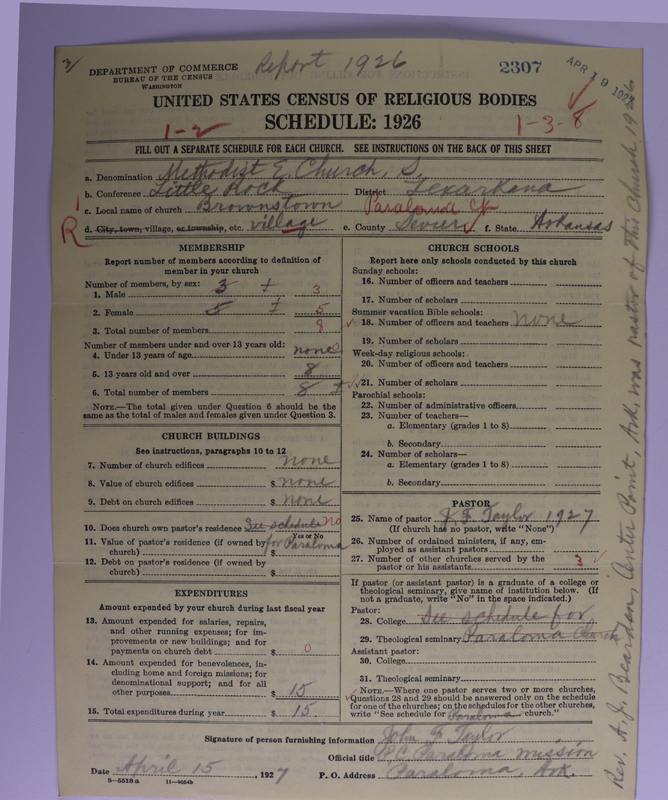 3/
DEPARTMENT OF COMMERCE
BUREAU OF THE CENSUS
WASHINGTON
Report 1926
2307
APR 19 192
UNITED STATES CENSUS OF RELIGIOUS BODIES
SCHEDULE: 1926
1-2
1-3-8
FILL OUT A SEPARATE SCHEDULE FOR EACH CHURCH. SEE INSTRUCTIONS ON THE BACK OF THIS SHEET
a. Denomination Methodist E. Church, S.
b. Conference Little Rock District Texarkana
c. Local name of church Brownstown
d. City, town, village, or township, etc. village e. County Sevier f. State Arkansas
R
MEMBERSHIP
Report number of members according to definition of
member in your church
Number of members, by sex:
1. Male 3 3
2. Female 5 5
3. Total number of members
Number of members under and over 13 years old:
4. Under 13 years of age none 0
5. 13 years old and over 8
6. Total number of members 8
NOTE.—The total given under Question 6 should be the
same as the total of males and females given under Question 3.
CHURCH BUILDINGS
See instructions, paragraphs 10 to 12
7. Number of church edifices none
8. Value of church edifices $ none
9. Debt on church edifices $ none
10. Does church own pastor's residence See schedule no
Yes or No
11. Value of pastor's residence (if owned by for Paraloma
church) $
12. Debt on pastor's residence (if owned by
church) $
EXPENDITURES
Amount expended by your church during last fiscal year
13. Amount expended for salaries, repairs,
and other running expenses; for im-
provements or new buildings; and for
payments on church debt $ 0
14. Amount expended for benevolences, in-
cluding home and foreign missions; for
denominational support; and for all
other purposes $ 15
15. Total expenditures during year $ 15
CHURCH SCHOOLS
Report here only schools conducted by this church
Sunday schools:
16. Number of officers and teachers
17. Number of scholars
Summer vacation Bible schools:
18. Number of officers and teachers none
19. Number of scholars
Week-day religious schools:
20. Number of officers and teachers
21. Number of scholars
Parochial schools:
22. Number of administrative officers
23. Number of teachers—
a. Elementary (grades 1 to 8)
b. Secondary
24. Number of scholars—
a. Elementary (grades 1 to 8)
b. Secondary
PASTOR
25. Name of pastor J. F. Taylor 1927
(If church has no pastor, write "None")
26. Number of ordained ministers, if any, em-
ployed as assistant pastors
27. Number of other churches served by the
pastor or his assistants 3
If pastor (or assistant pastor) is a graduate of a college or
theological seminary, give name of institution below. (If
not a graduate, write "No" in the space indicated.)
Pastor:
28. College See schedule for
29. Theological seminary Paraloma Church
Assistant pastor:
30. College
31. Theological seminary
NOTE.—Where one pastor serves two or more churches,
Questions 28 and 29 should be answered only on the schedule
for one of the churches; on the schedules for the other churches,
write "See schedule for Paraloma church."
Signature of person furnishing information John F Taylor
Official title P.C. Paraloma mission
Date April 15, 1927 P. O. Address Paraloma, Ark.
8—5518a 11—9054b
Rev. A. J. Bearden, Center Point, Ark. was pastor of this Church 1926